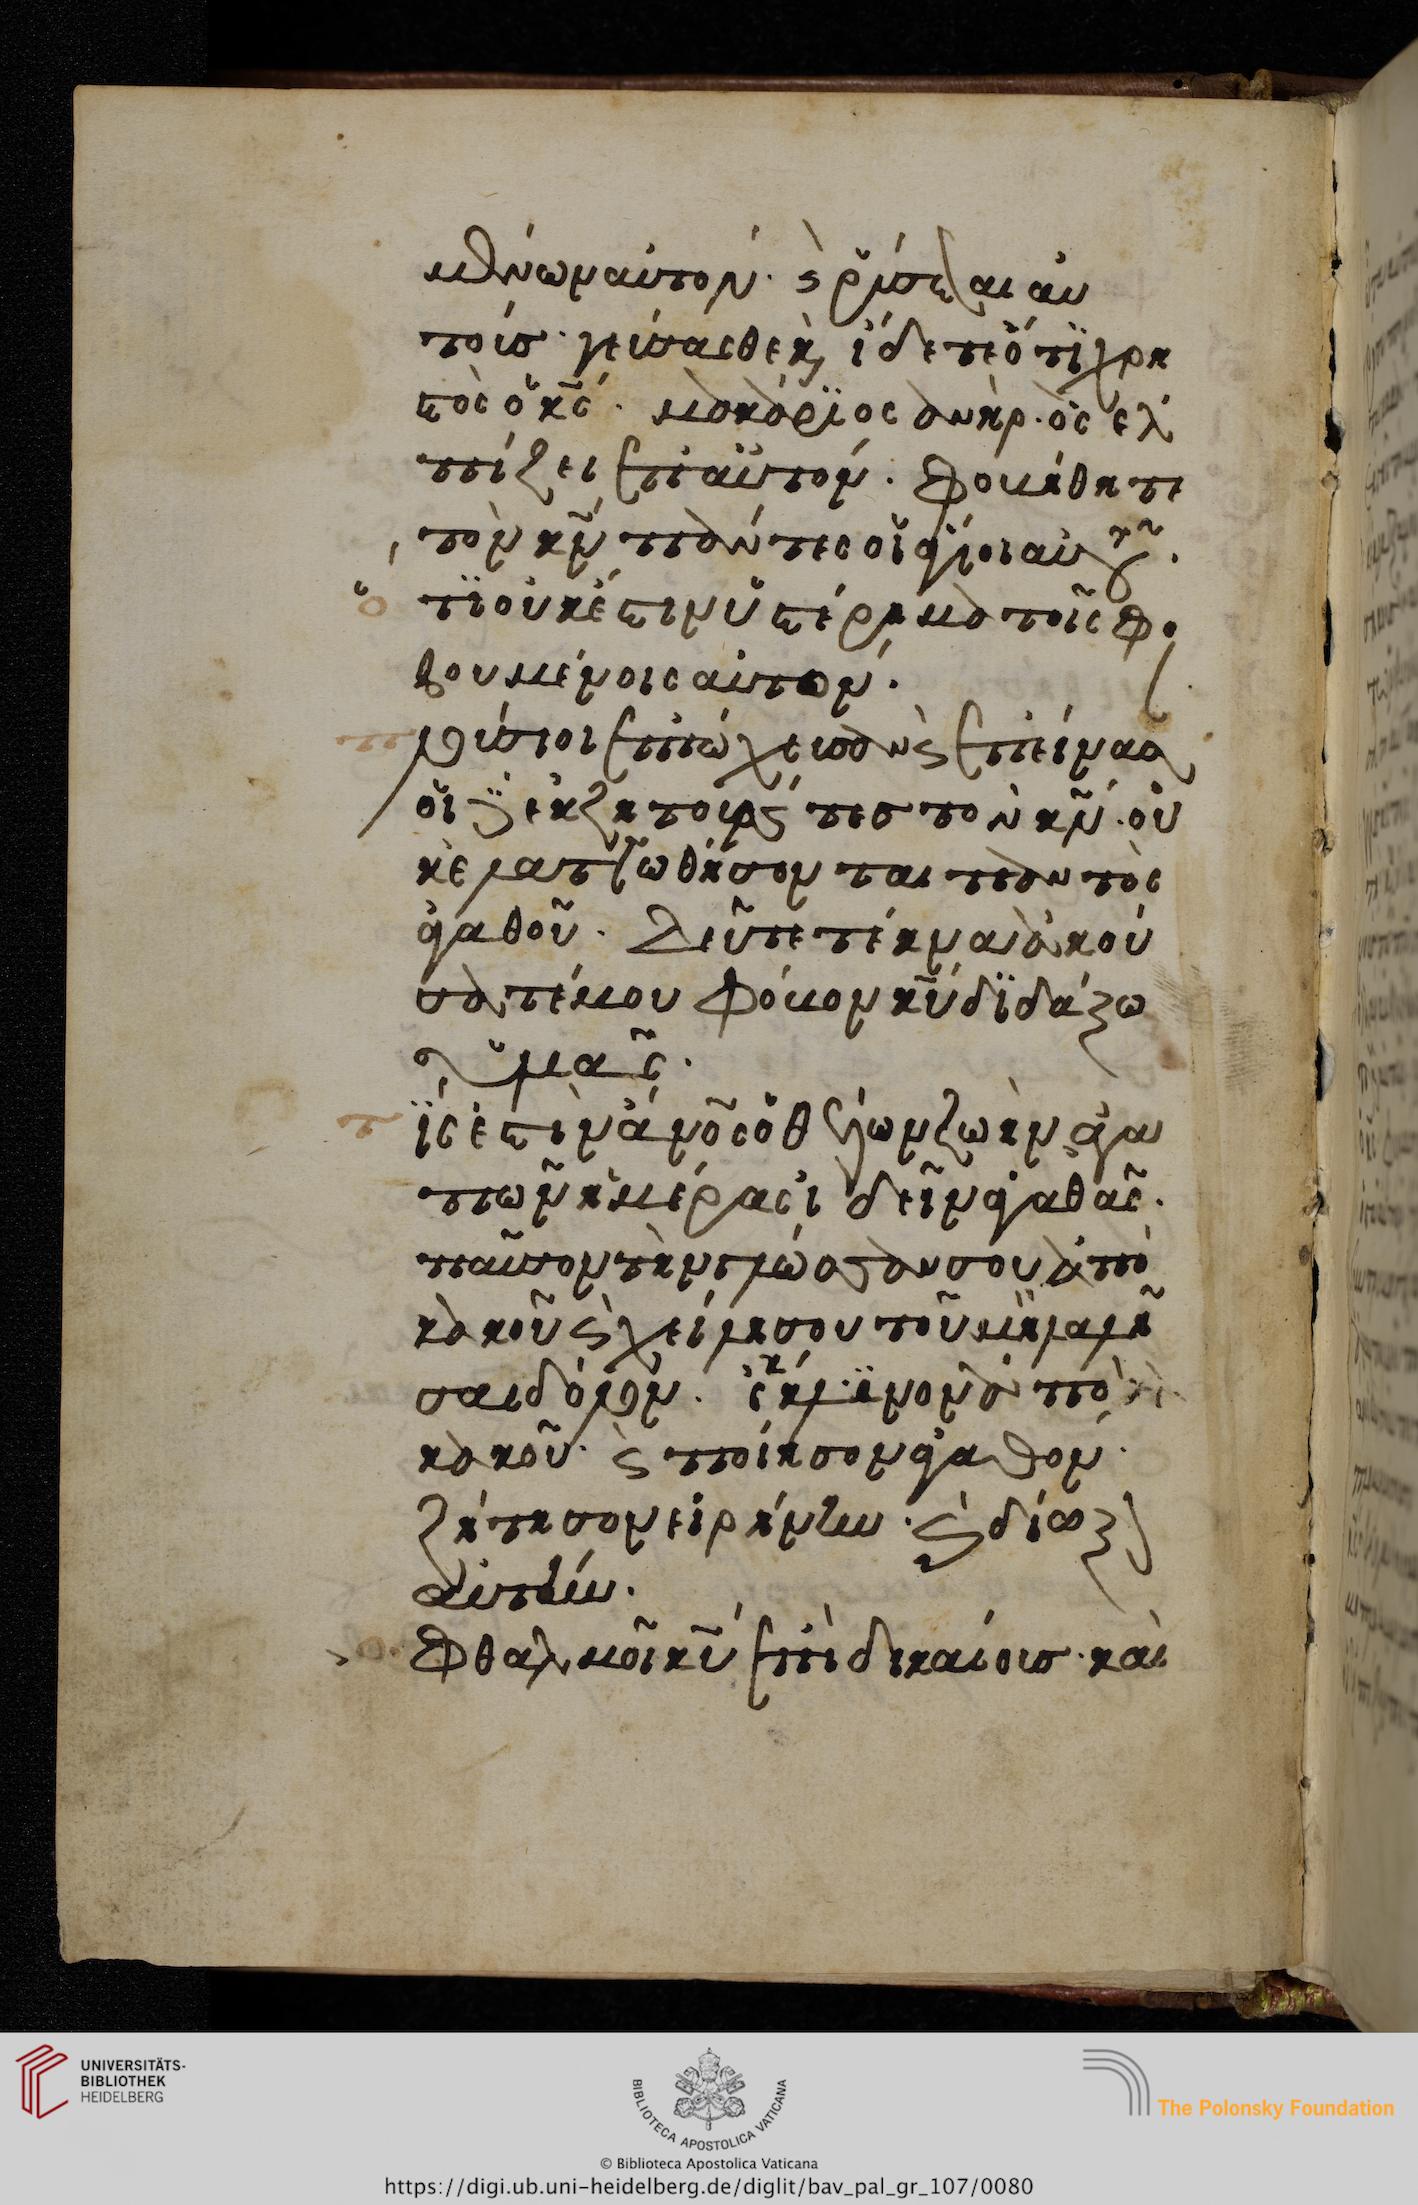 μένων αὐτὸν. καὶ ῥύσεται αὐ
τούς. γεύσασθε καὶ ἴδετε ὅτι χρη
στὸς ὁ κς. μακάριος ἀνὴρ. ὃς ἐλ
πίζει ἐπ' αὐτόν. φοβήθητε
τὸν κν πάντες οἱ ἅγιοι αὐτοῦ.
ὅτι οὐκ ἔστιν ὑστέρημα τοῖς φο
βουμένοις αὐτὸν.
πλούσιοι ἐπτώχευσαν καὶ ἐπείνασαν
οἱ δὲ ἐκζητοῦντες τὸν κν. οὐ
κ ἐλαττωθήσονται παντὸς
ἀγαθοῦ. Δεῦτε τέκνα ἀκού
σατέ μου φόβον κυ διδάξω
ὑμᾶς.
τίς ἐστιν ἄνος ὁ θέλων ζωὴν ἀγα
πῶν ἡμέρας ἰδεῖν ἀγαθάς.
παῦσον τὴν γλῶσσάν σου ἀπὸ
κακοῦ καὶ χείλη σου τοῦ μὴ λαλῆ
σαι δόλον. ἔκκλινον ἀπὸ
κακοῦ. καὶ ποίησον ἀγαθόν.
ζήτησον εἰρήνην. καὶ δίωξον
αὐτήν.
ὀφθαλμοὶ κυ ἐπὶ δικαίους. καὶ
UNIVERSITÄTS-
BIBLIOTHEK
HEIDELBERG
BIBLIOTECA APOSTOLICA VATICANA
© Biblioteca Apostolica Vaticana
The Polonsky Foundation
https://digi.ub.uni-heidelberg.de/diglit/bav_pal_gr_107/0080